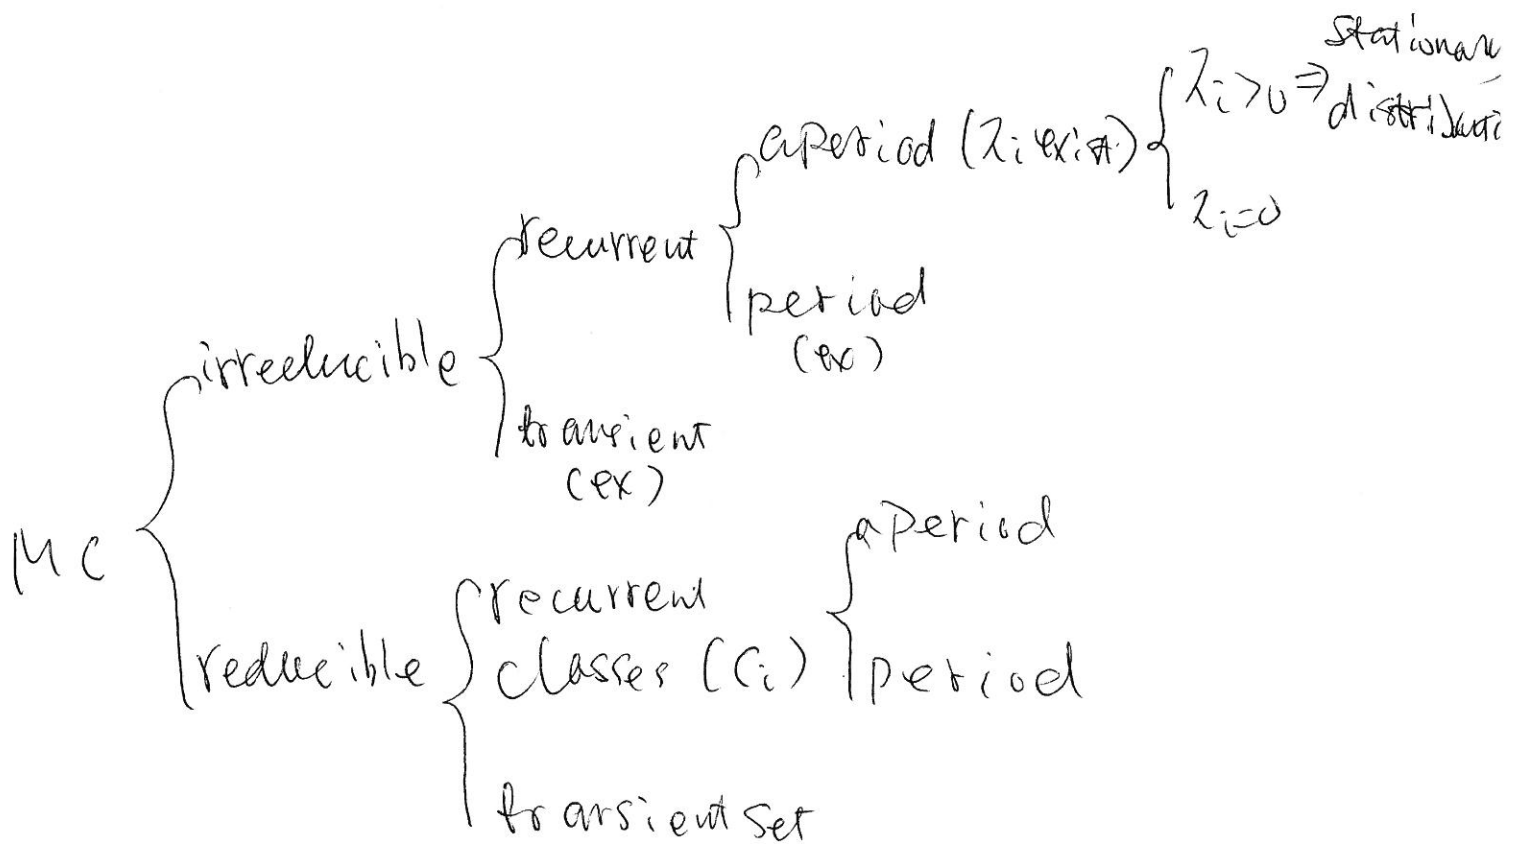 MC
irreducible
recurrent
aperiod (λi exist)
λi>0 ⇒ stationary
distributi
λi=0
period
(ex)
transient
(ex)
reducible
recurrent
classes (Ci)
aperiod
period
transient set